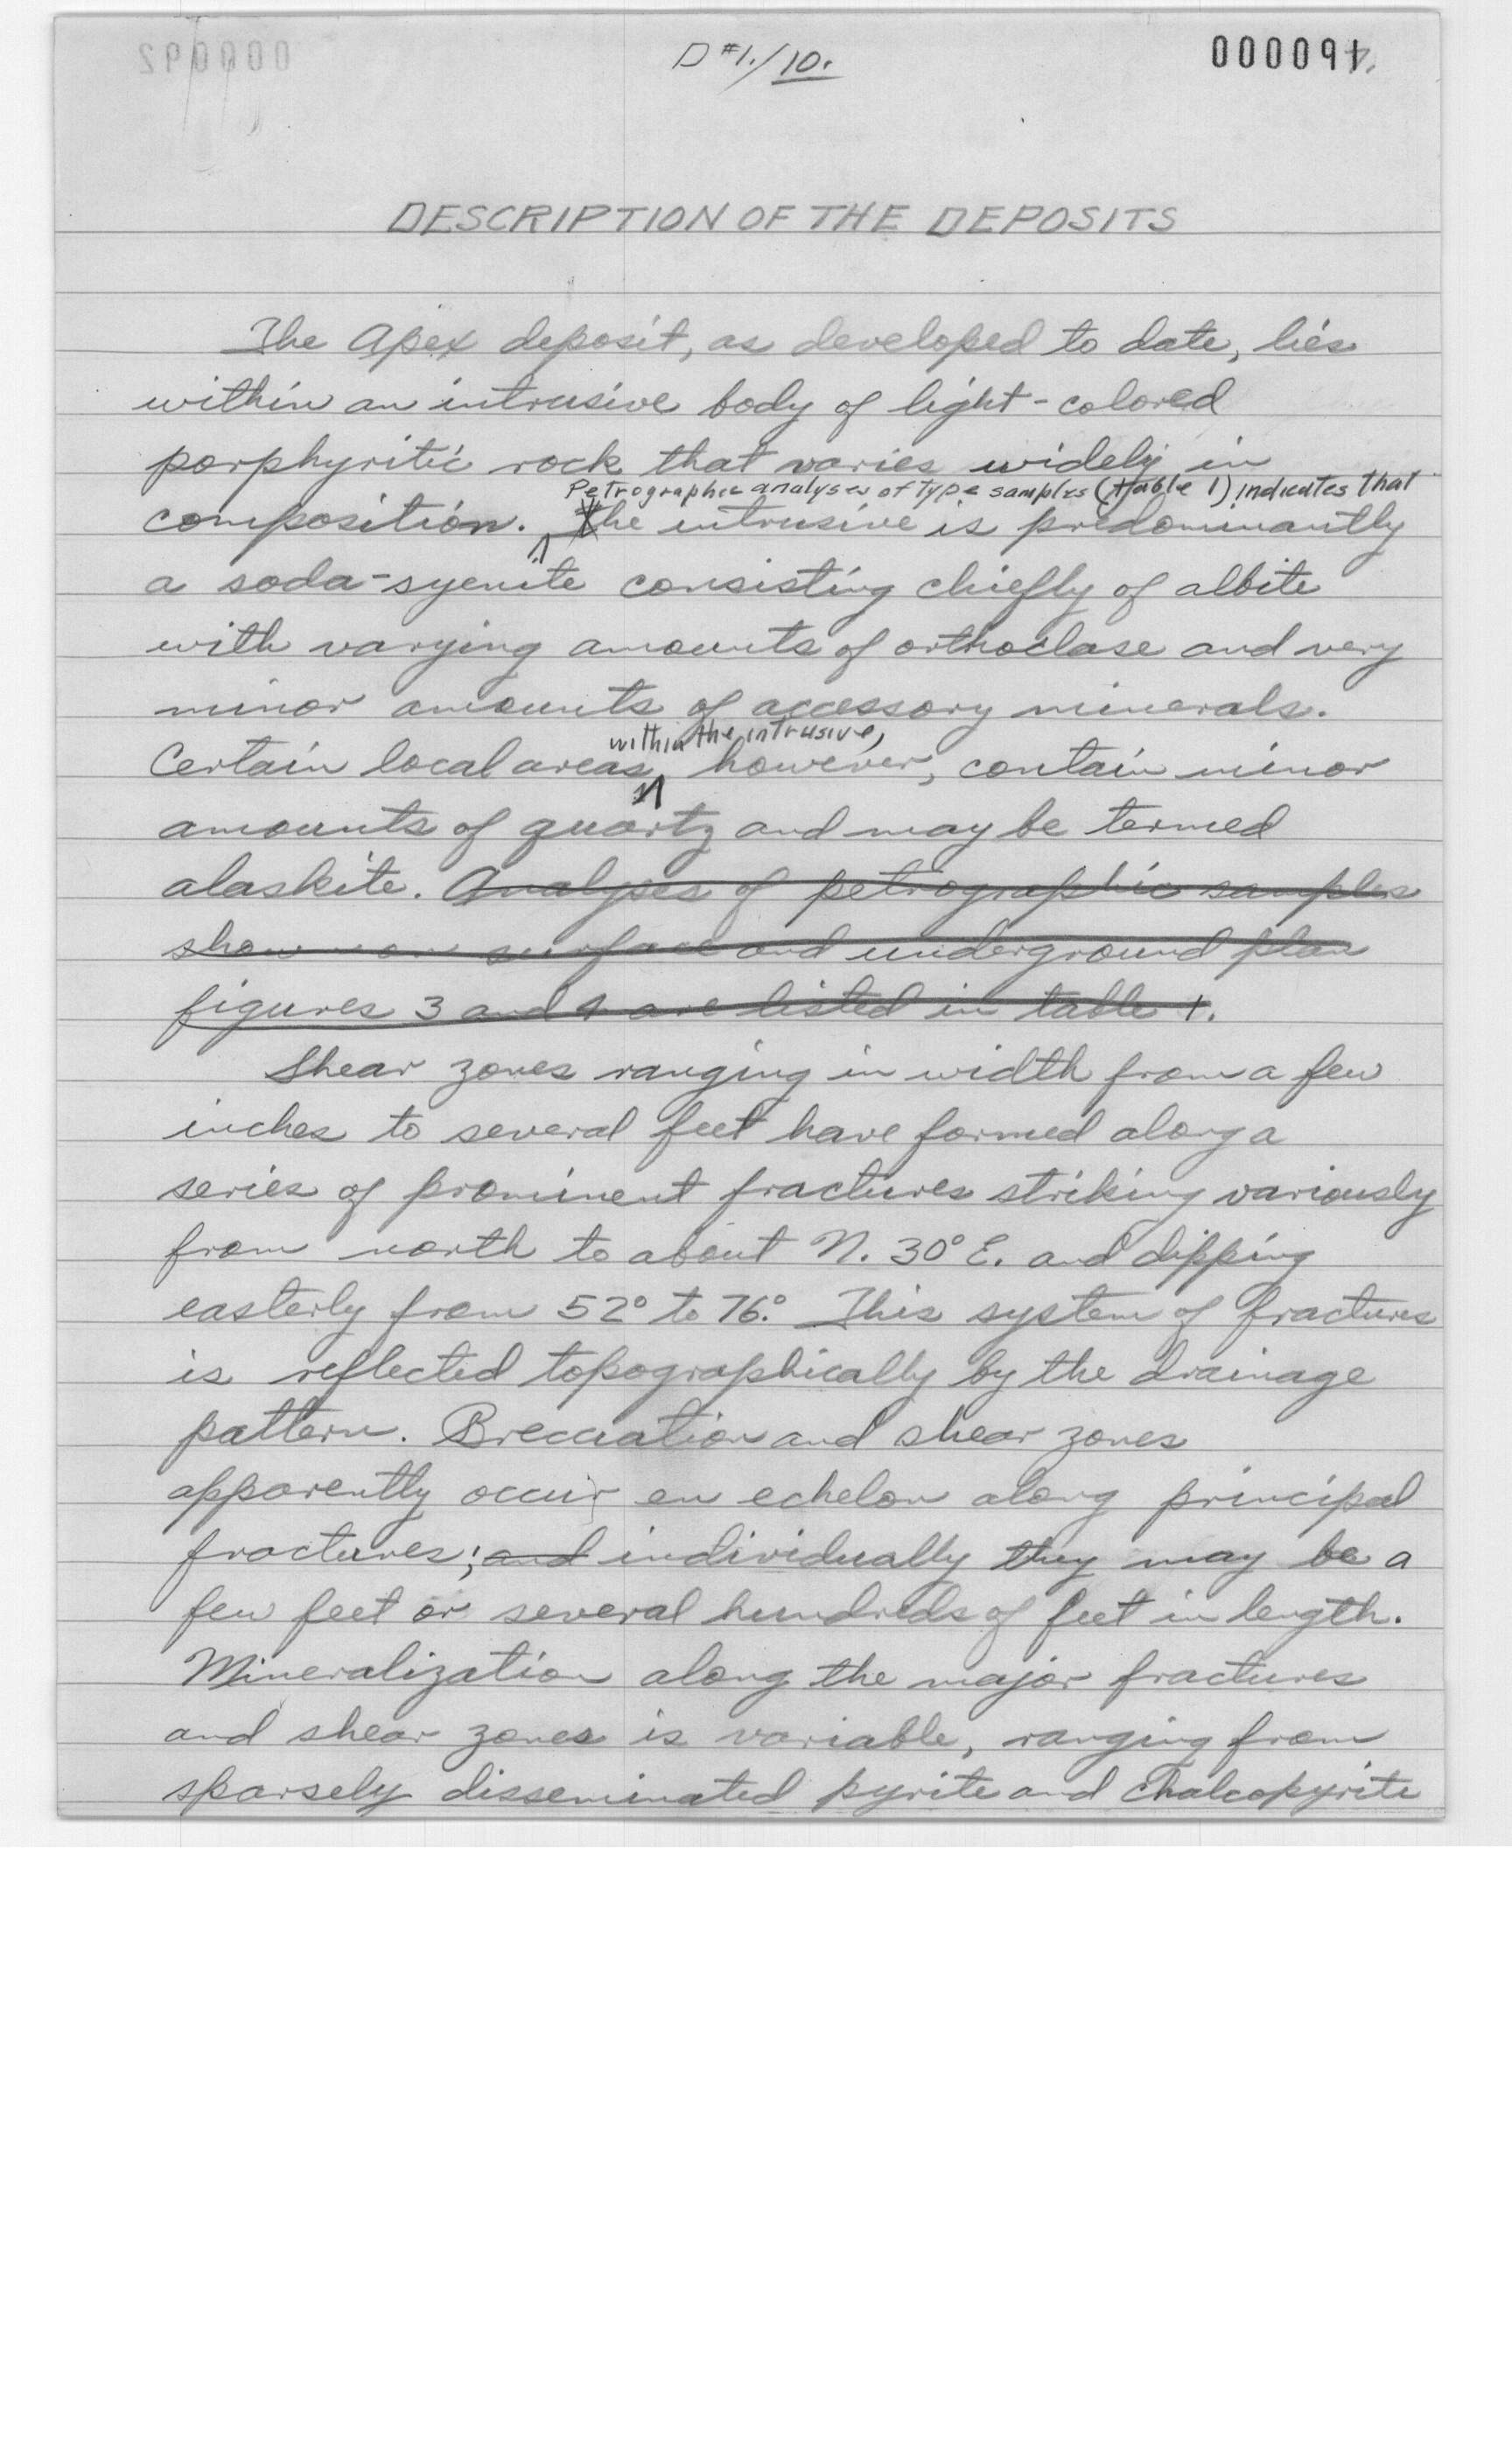 D #1./10.
000094
DESCRIPTION OF THE DEPOSITS
The Apex deposit, as developed to date, lies
within an intrusive body of light-colored
porphyritic rock that varies widely in
Petrographic analyses of type samples (table 1) indicates that
composition. the intrusive is predominantly
a soda-syenite consisting chiefly of albite
with varying amounts of orthoclase and very
minor amounts of accessory minerals.
within the intrusive,
Certain local areas, however, contain minor
amounts of quartz and may be termed
alaskite. Analyses of petrographic samples
shown on surface and underground plan
figures 3 and 4 are listed in table 1.
Shear zones ranging in width from a few
inches to several feet have formed along a
series of prominent fractures striking variously
from north to about N. 30° E. and dipping
easterly from 52° to 76°. This system of fractures
is reflected topographically by the drainage
pattern. Brecciation and shear zones
apparently occur en echelon along principal
fractures; and individually they may be a
few feet or several hundreds of feet in length.
Mineralization along the major fractures
and shear zones is variable, ranging from
sparsely disseminated pyrite and chalcopyrite